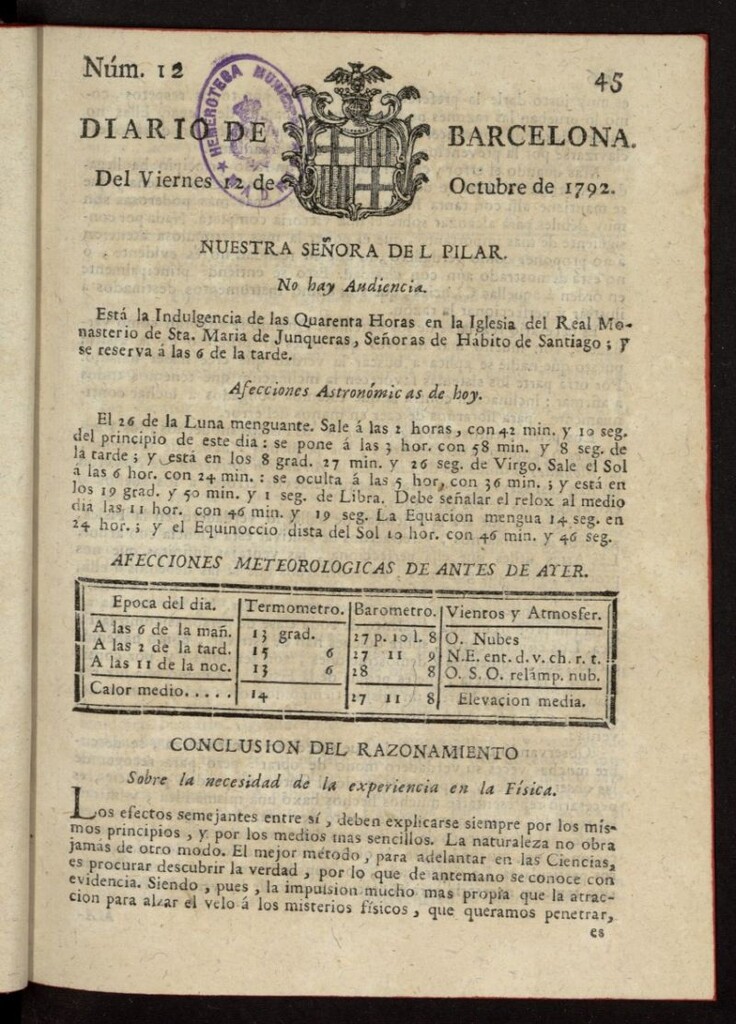 Núm. 12
45
HEMEROTECA MUNICIPAL
MADRID
DIARIO DE BARCELONA.
Del Viernes 12 de Octubre de 1792.
NUESTRA SEÑORA DEL PILAR.
No hay Audiencia.
Está la Indulgencia de las Quarenta Horas en la Iglesia del Real Mo-
nasterio de Sta. Maria de Junqueras, Señoras de Hábito de Santiago; y
se reserva á las 6 de la tarde.
Afecciones Astronómicas de hoy.
El 26 de la Luna menguante. Sale á las 2 horas, con 42 min. y 10 seg.
del principio de este dia: se pone á las 3 hor. con 58 min. y 8 seg. de
la tarde; y está en los 8 grad. 27 min. y 26 seg. de Virgo. Sale el Sol
á las 6 hor. con 24 min.: se oculta á las 5 hor, con 36 min.; y está en
los 19 grad. y 50 min. y 1 seg. de Libra. Debe señalar el relox al medio
dia las 11 hor. con 46 min. y 19 seg. La Equacion mengua 14 seg. en
24 hor.; y el Equinoccio dista del Sol 10 hor. con 46 min. y 46 seg.
AFECCIONES METEOROLOGICAS DE ANTES DE AYER.
Epoca del dia. Termometro. Barometro. Vientos y Atmosfer.
A las 6 de la mañ. 13 grad. 27 p. 10 l. 8 O. Nubes
A las 2 de la tard. 15 6 27 11 9 N.E. ent. d. v. ch. r. t.
A las 11 de la noc. 13 6 28 8 O. S. O. relámp. nub.
Calor medio..... 14 27 11 8 Elevacion media.
CONCLUSION DEL RAZONAMIENTO
Sobre la necesidad de la experiencia en la Física.
Los efectos semejantes entre sí, deben explicarse siempre por los mis-
mos principios, y por los medios mas sencillos. La naturaleza no obra
jamás de otro modo. El mejor método, para adelantar en las Ciencias,
es procurar descubrir la verdad, por lo que de antemano se conoce con
evidencia. Siendo, pues, la impulsion mucho mas propia que la atrac-
cion para alzar el velo á los misterios físicos, que queramos penetrar,
es